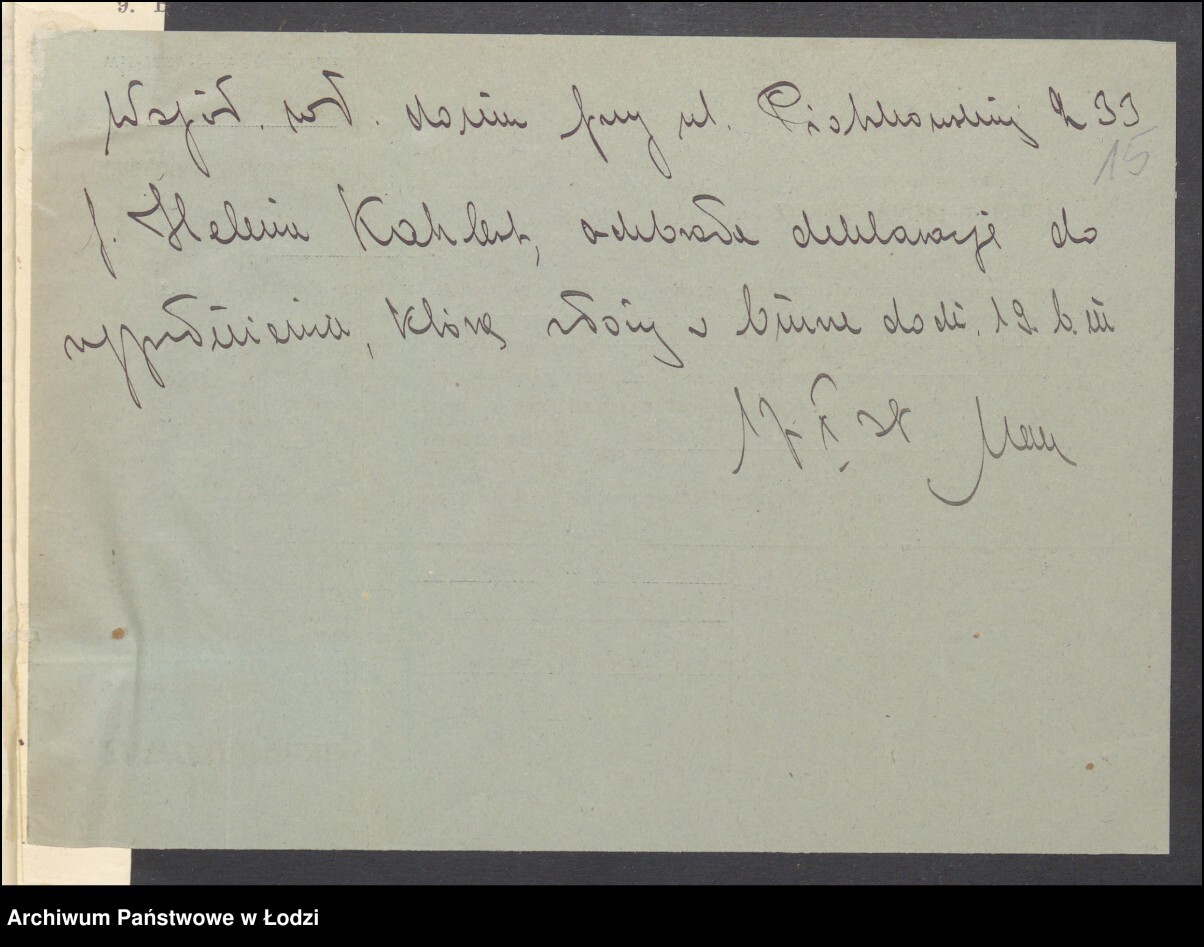 9.
Współ. wł. domu przy ul. Piotrkowskiej 233
15
p. Helena Kahlert, odebrała deklarację do
wypełnienia, którą złoży w biurze do dn. 19. b.m
17 X
Archiwum Państwowe w Łodzi